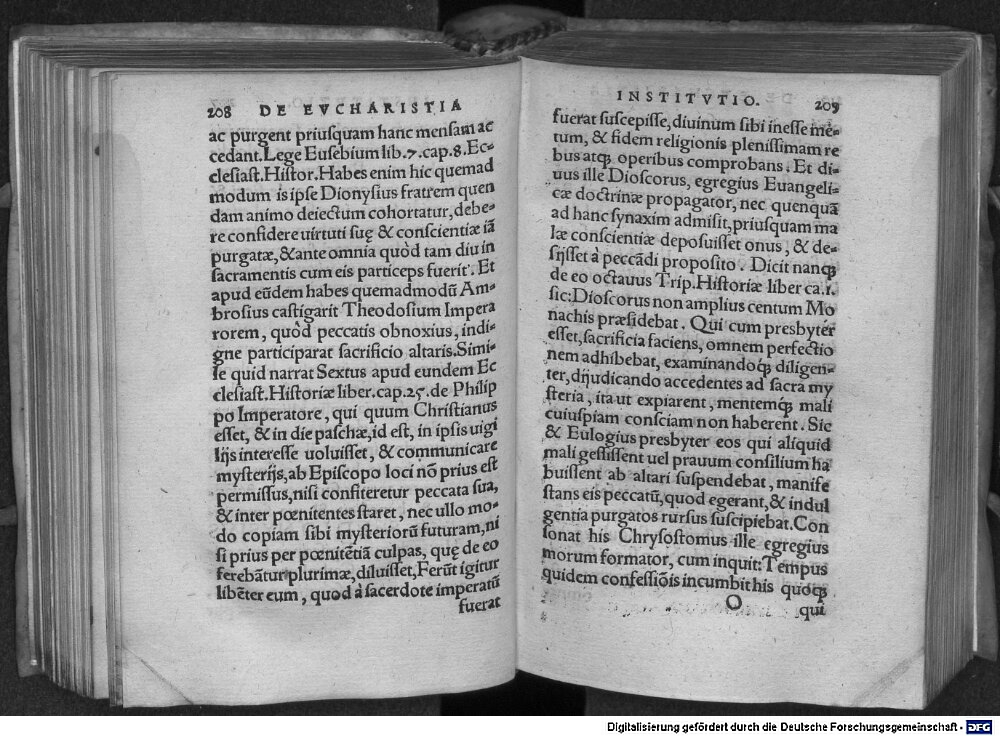 208 DE EVCHARISTIA
ac purgent priusquam hanc mensam ac
cedant. Lege Eusebium lib. 7. cap. 8. Ec-
clesiast. Histor. Habes enim hic quemad
modum is ipse Dionysius fratrem quen
dam animo deiectum cohortatur, debe-
re confidere uirtuti suę & conscientiæ iã
purgatæ, & ante omnia quòd tam diu in
sacramentis cum eis particeps fuerit. Et
apud eũdem habes quemadmodũ Am-
brosius castigarit Theodosium Impera
rorem, quòd peccatis obnoxius, indi-
gne participarat sacrificio altaris. Simi-
le quid narrat Sextus apud eundem Ec
clesiast. Historiæ liber. cap. 25. de Philip
po Imperatore, qui quum Christianus
esset, & in die paschæ, id est, in ipsis uigi
lijs interesse uoluisset, & communicare
mysterijs, ab Episcopo loci nõ prius est
permissus, nisi confiteretur peccata sua,
& inter pœnitentes staret, nec ullo mo-
do copiam sibi mysteriorũ futuram, ni
si prius per pœnitẽtiã culpas, quę de eo
ferebãtur plurimæ, diluisset, Ferũt igitur
libẽter eum, quod à sacerdote imperatũ
fuerat
INSTITVTIO. 209
fuerat suscepisse, diuinum sibi inesse me-
tum, & fidem religionis plenissimam re
bus atq; operibus comprobans. Et di-
uus ille Dioscorus, egregius Euangeli-
cæ doctrinæ propagator, nec quenquã
ad hanc synaxim admisit, priusquam ma
læ conscientiæ deposuisset onus, & de-
sijsset à peccãdi proposito. Dicit nanq;
de eo octauus Trip. Historiæ liber ca. 1.
sic: Dioscorus non amplius centum Mo
nachis præsidebat. Qui cum presbyter
esset, sacrificia faciens, omnem perfectio
nem adhibebat, examinandoq; diligen-
ter, dijudicando accedentes ad sacra my
steria, ita ut expiarent, mentemq; mali
cuiuspiam consciam non haberent. Sic
& Eulogius presbyter eos qui aliquid
mali gessissent uel prauum consilium ha
buissent ab altari suspendebat, manife
stans eis peccatũ, quod egerant, & indul
gentia purgatos rursus suscipiebat. Con
sonat his Chrysostomus ille egregius
morum formator, cum inquit: Tempus
quidem confessiõis incumbit his quoq;
O qui
Digitalisierung gefördert durch die Deutsche Forschungsgemeinschaft - DFG